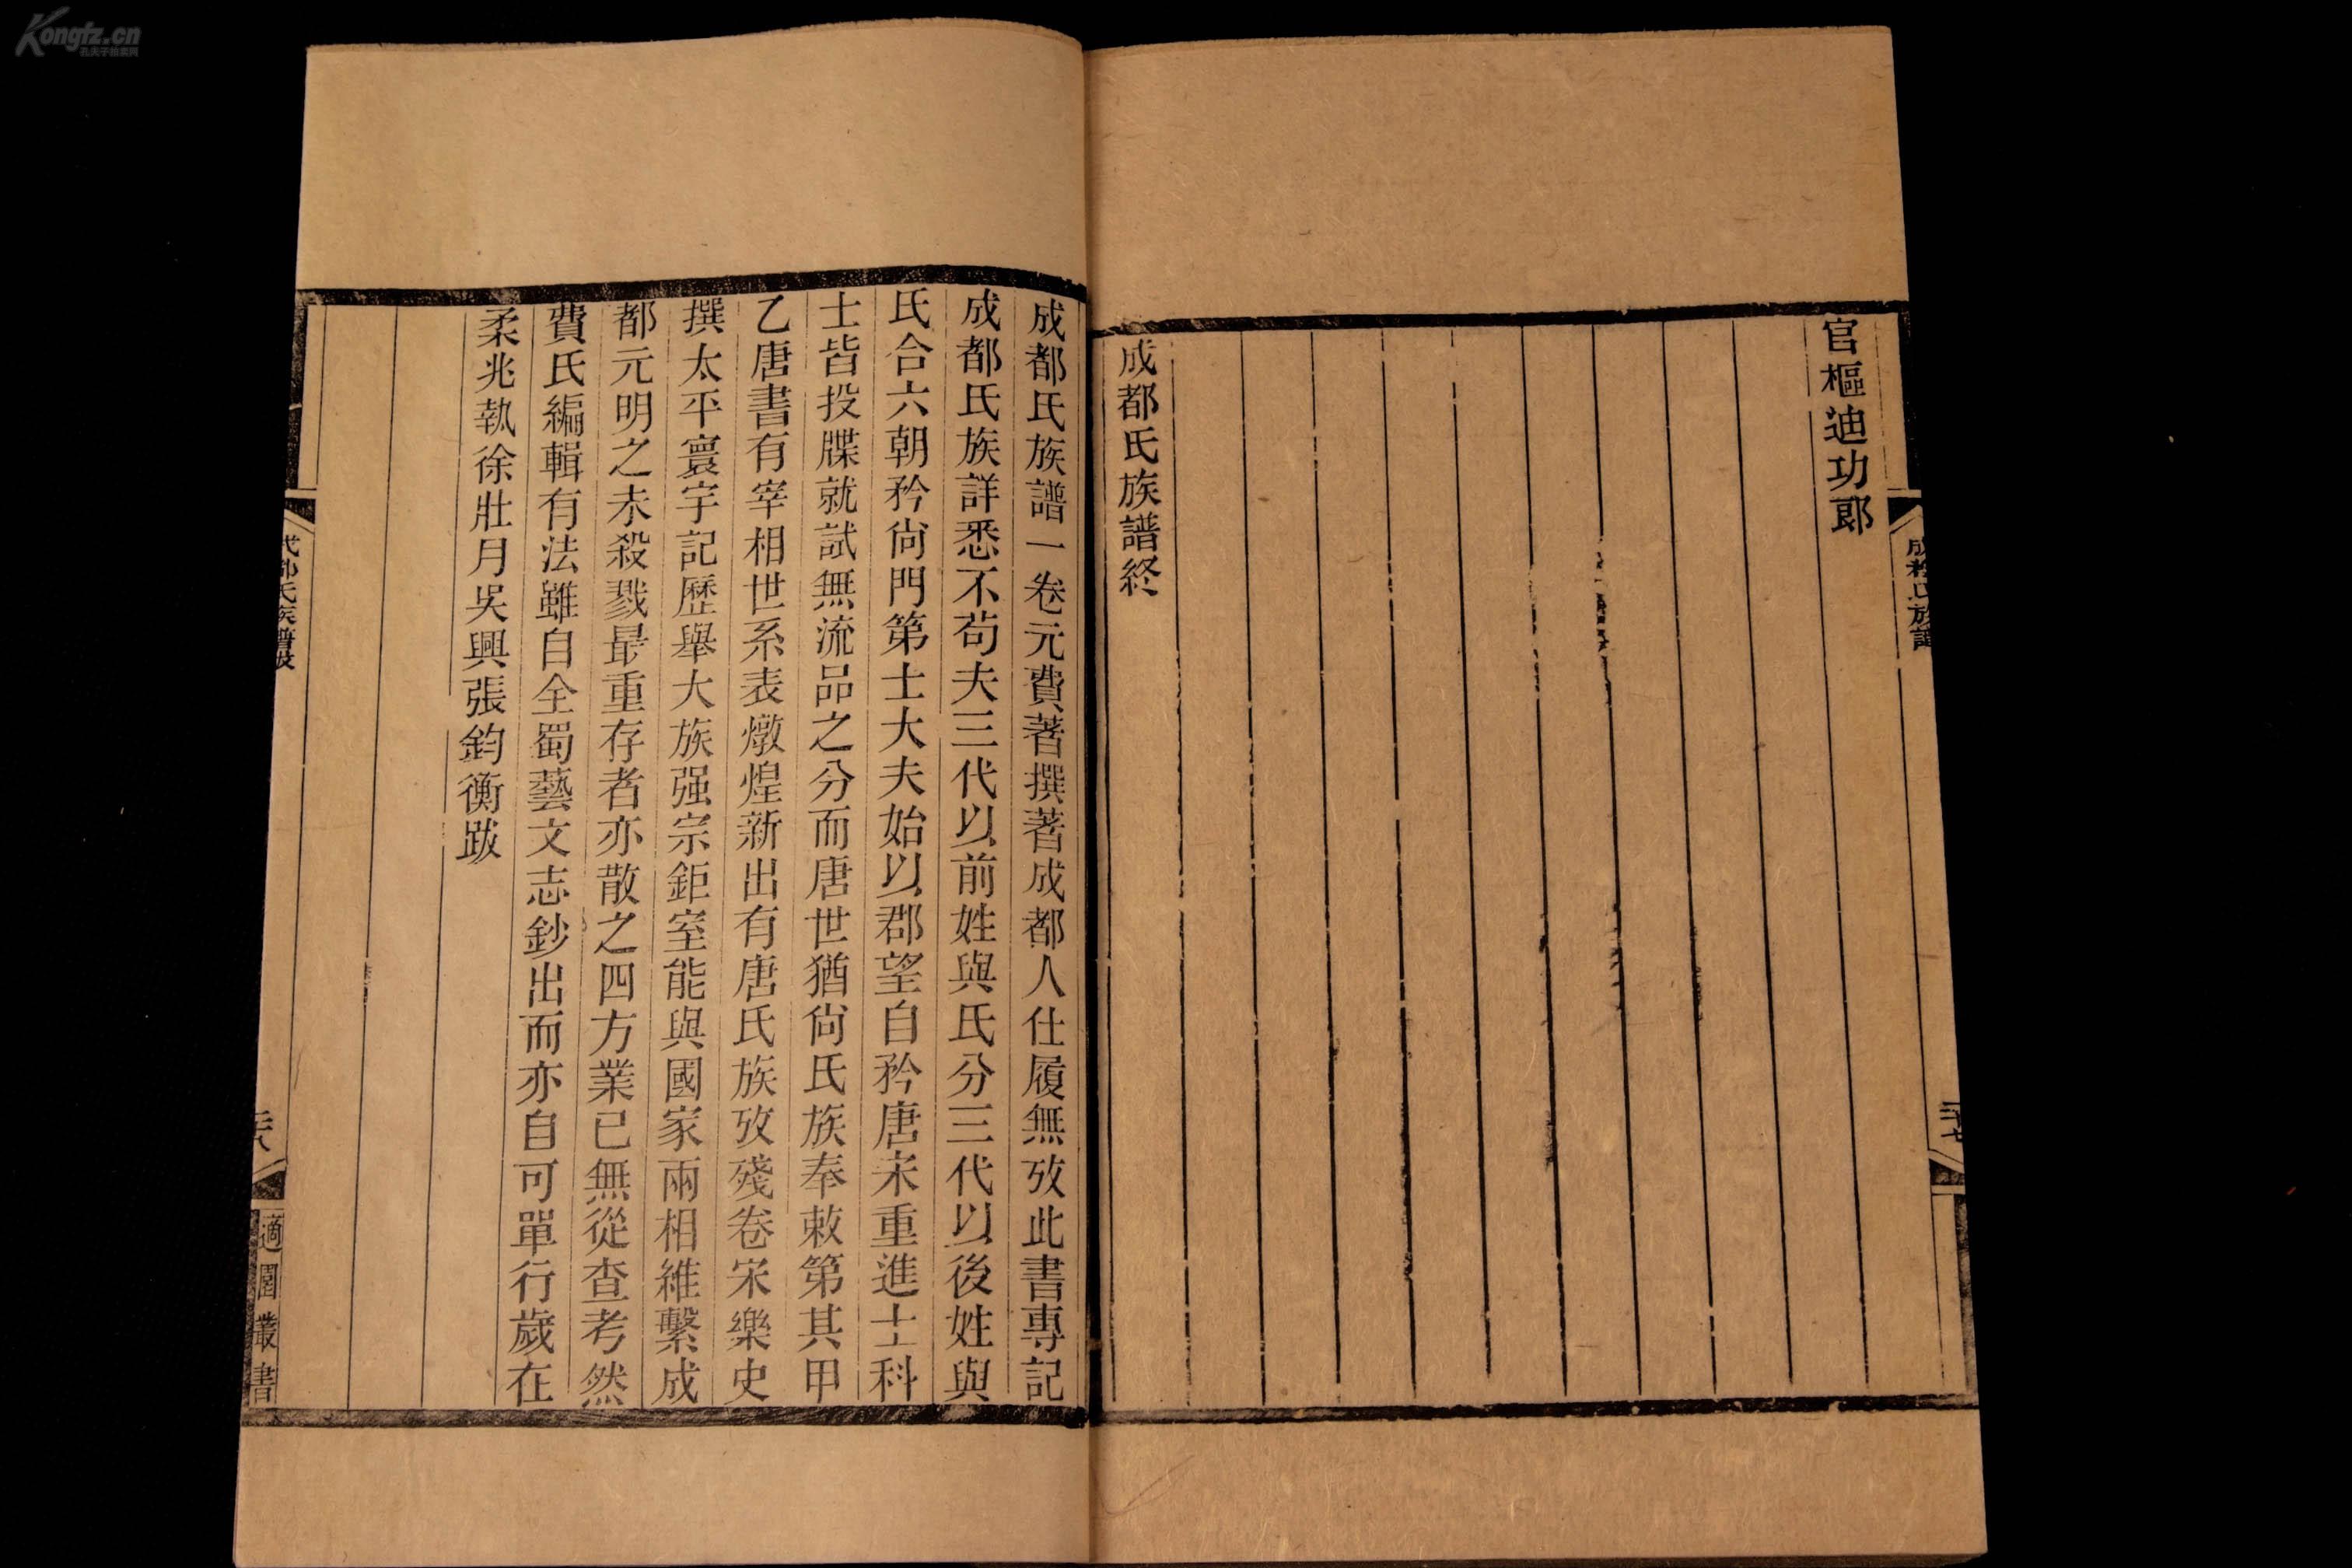 官樞迪功郎
成都氏族譜終
成都氏族譜一卷元費著撰著成都人仕履無攷此書專記
成都氏族詳悉不苟夫三代以前姓與氏分三代以後姓與
氏合六朝矜尙門第士大夫始以郡望自矜唐宋重進士科
士皆投牒就試無流品之分而唐世猶尙氏族奉敕第其甲
乙唐書有宰相世系表燉煌新出有唐氏族攷殘卷宋樂史
撰太平寰宇記歷舉大族强宗鉅室能與國家兩相維繫成
都元明之未殺戮最重存者亦散之四方業已無從查考然
費氏編輯有法雖自全蜀藝文志鈔出而亦自可單行歲在
柔兆執徐壯月吳興張鈞衡跋
成都氏族譜
二十七
成都氏族譜跋
二十八
適園叢書
Kongfz.cn
孔夫子拍卖网